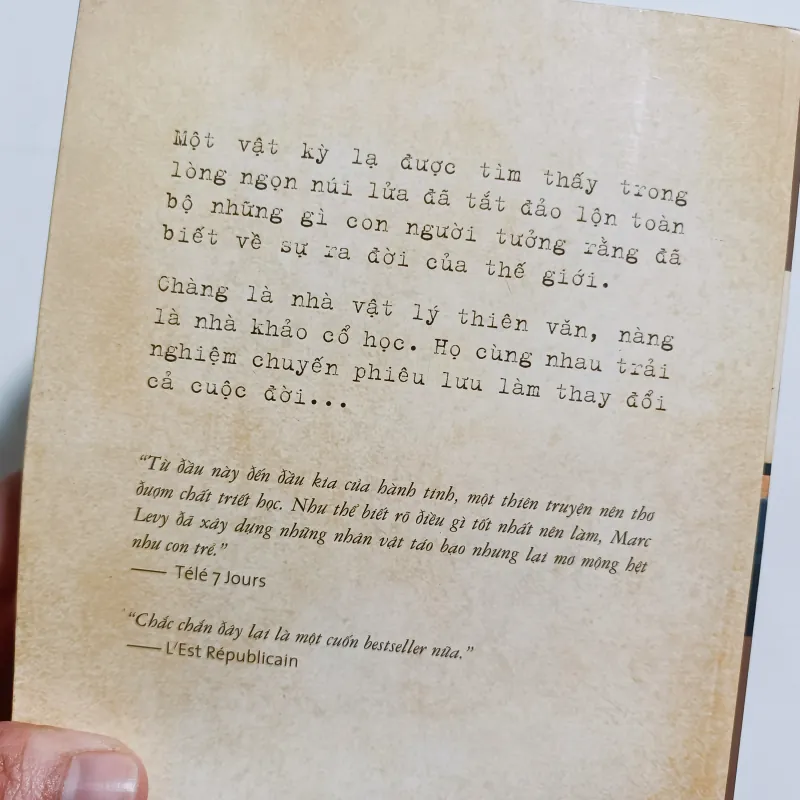 Một vật kỳ lạ được tìm thấy trong
lòng ngọn núi lửa đã tắt đảo lộn toàn
bộ những gì con người tưởng rằng đã
biết về sự ra đời của thế giới.
Chàng là nhà vật lý thiên văn, nàng
là nhà khảo cổ học. Họ cùng nhau trải
nghiệm chuyến phiêu lưu làm thay đổi
cả cuộc đời...
“Từ đầu này đến đầu kia của hành tinh, một thiên truyện nên thơ
đượm chất triết học. Như thể biết rõ điều gì tốt nhất nên làm, Marc
Levy đã xây dựng những nhân vật táo bạo nhưng lại mơ mộng hệt
như con trẻ.”
—— Télé 7 Jours
“Chắc chắn đây lại là một cuốn bestseller nữa.”
—— L’Est Républicain